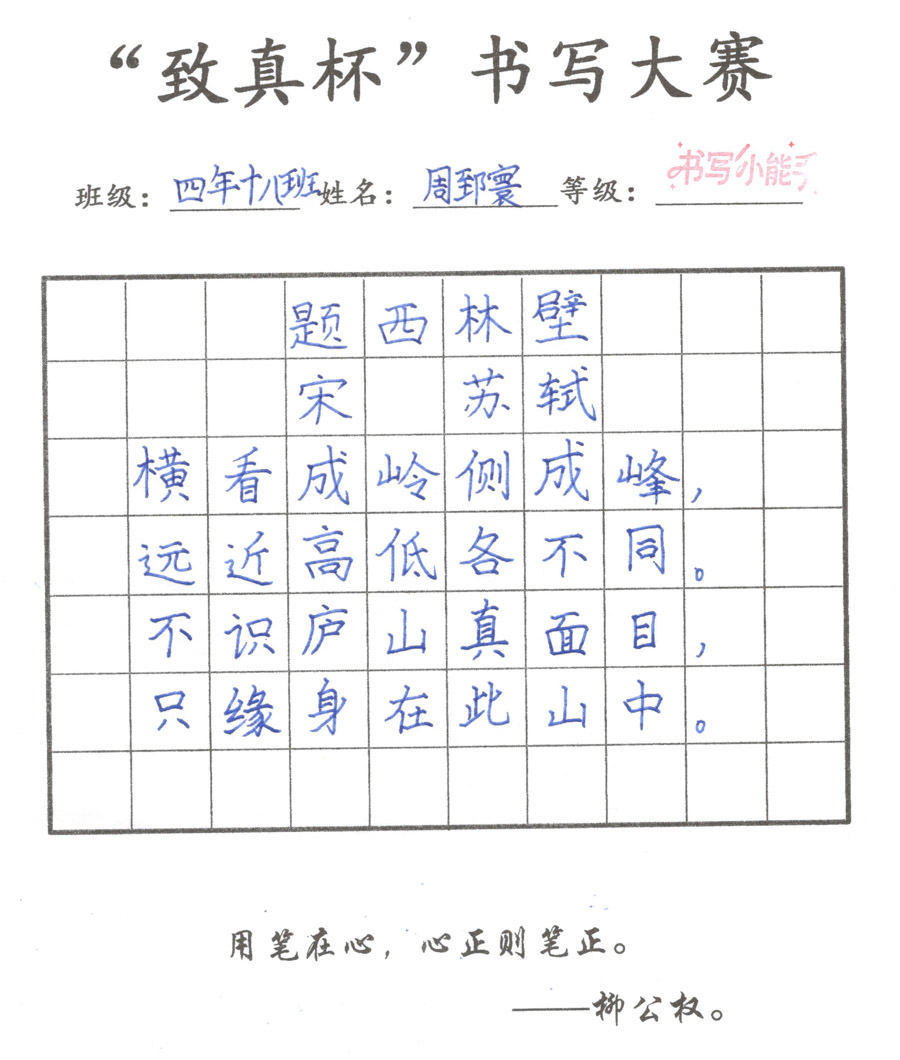 “致真杯”书写大赛
班级：四年十八班 姓名：周郅寰 等级：书写小能手
题西林壁
宋 苏轼
横看成岭侧成峰，
远近高低各不同。
不识庐山真面目，
只缘身在此山中。
用笔在心，心正则笔正。
——柳公权。